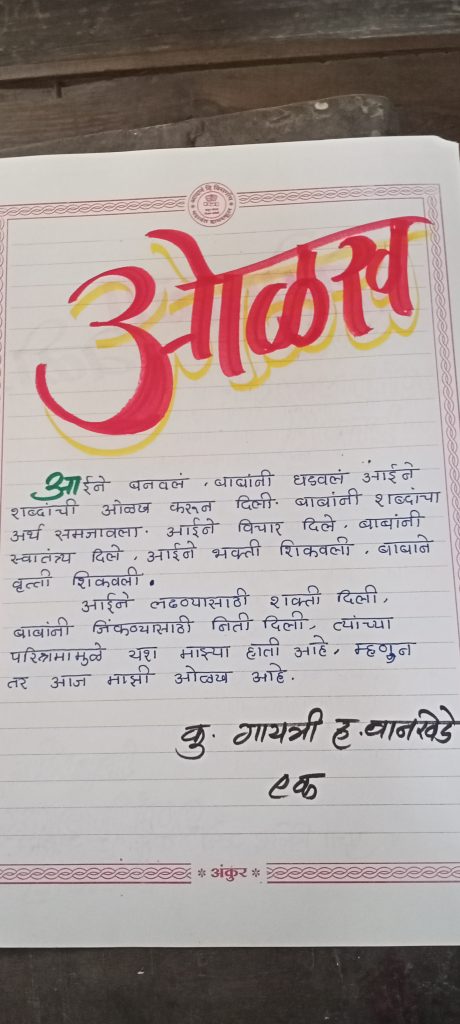 ओळख
आईने बनवलं, बाबांनी घडवलं आईने
शब्दांची ओळख करून दिली. बाबांनी शब्दांचा
अर्थ समजावला. आईने विचार दिले, बाबांनी
स्वातंत्र्य दिले, आईने भक्ती शिकवली, बाबाने
वृत्ती शिकवली.
आईने लढण्यासाठी शक्ती दिली,
बाबांनी जिंकण्यासाठी निती दिली, त्यांच्या
परिश्रमामुळे यश माझ्या हाती आहे, म्हणुन
तर आज माझी ओळख आहे.
कु. गायत्री ह. वानखेडे
एक
* अंकुर *